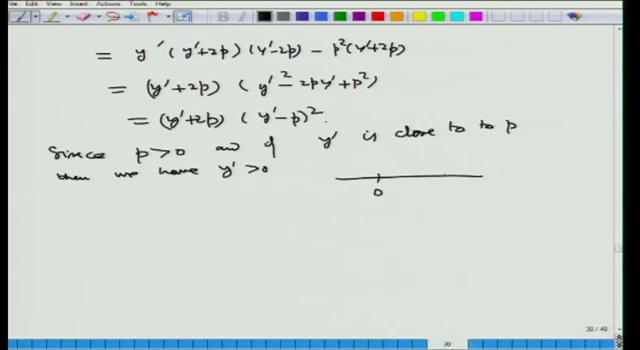 File Edit View Insert Actions Tools Help
= y' (y'+2p) (y'-2p) - p²(y'+2p)
= (y'+2p) ( y'² - 2py' + p²)
= (y'+2p) ( y'-p)².
Since p>0 and if y' is close to to p
then we have y' >0
0
30 / 40
30